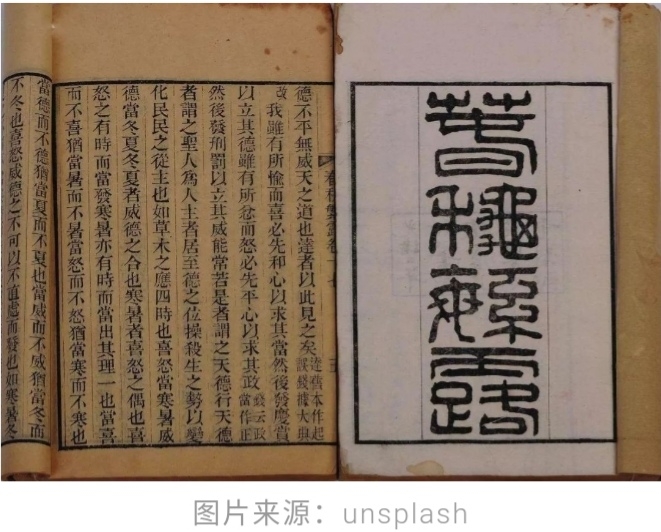 春秋繁露
春秋繁露卷十七
德不平無威天之道也達者以此見之矣達舊本作起誤錢據大典
改我雖有所愉而喜必先和心以求其當然後發慶賞
以立其德雖有所忿而怒必先平心以求其政錢云政當作正
然後發刑罰以立其威能常若是者謂之天德行天德
者謂之聖人爲人主者居至德之位操殺生之勢以變
化民民之從主也如草木之應四時也喜怒當寒暑威
德當冬夏冬夏者威德之合也寒暑者喜怒之偶也喜
怒之有時而當發寒暑亦有時而當出其理一也當喜
而不喜猶當暑而不暑當怒而不怒猶當寒而不寒也
當德而不德猶當夏而不夏也當威而不威猶當冬而
不冬也喜怒威德之不可以不直處而發也如寒暑冬
图片来源：unsplash